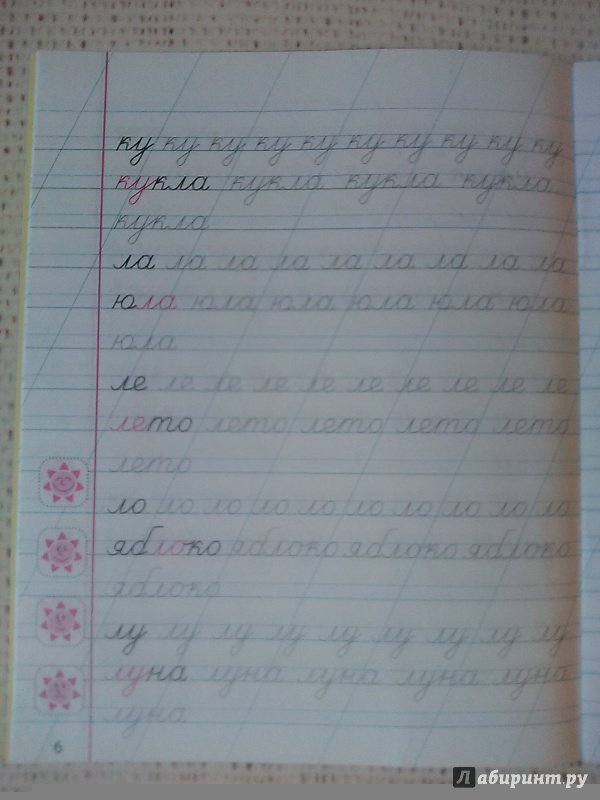 ку ку ку ку ку ку ку ку ку ку
кукла кукла кукла кукла
кукла
ла ла ла ла ла ла ла ла ла
юла юла юла юла юла юла
юла
ле ле ле ле ле ле ле ле ле ле
лето лето лето лето лето
лето
ло ло ло ло ло ло ло ло ло ло
яблоко яблоко яблоко яблоко
яблоко
лу лу лу лу лу лу лу лу лу
луна луна луна луна луна
луна
6
Лабиринт.ру